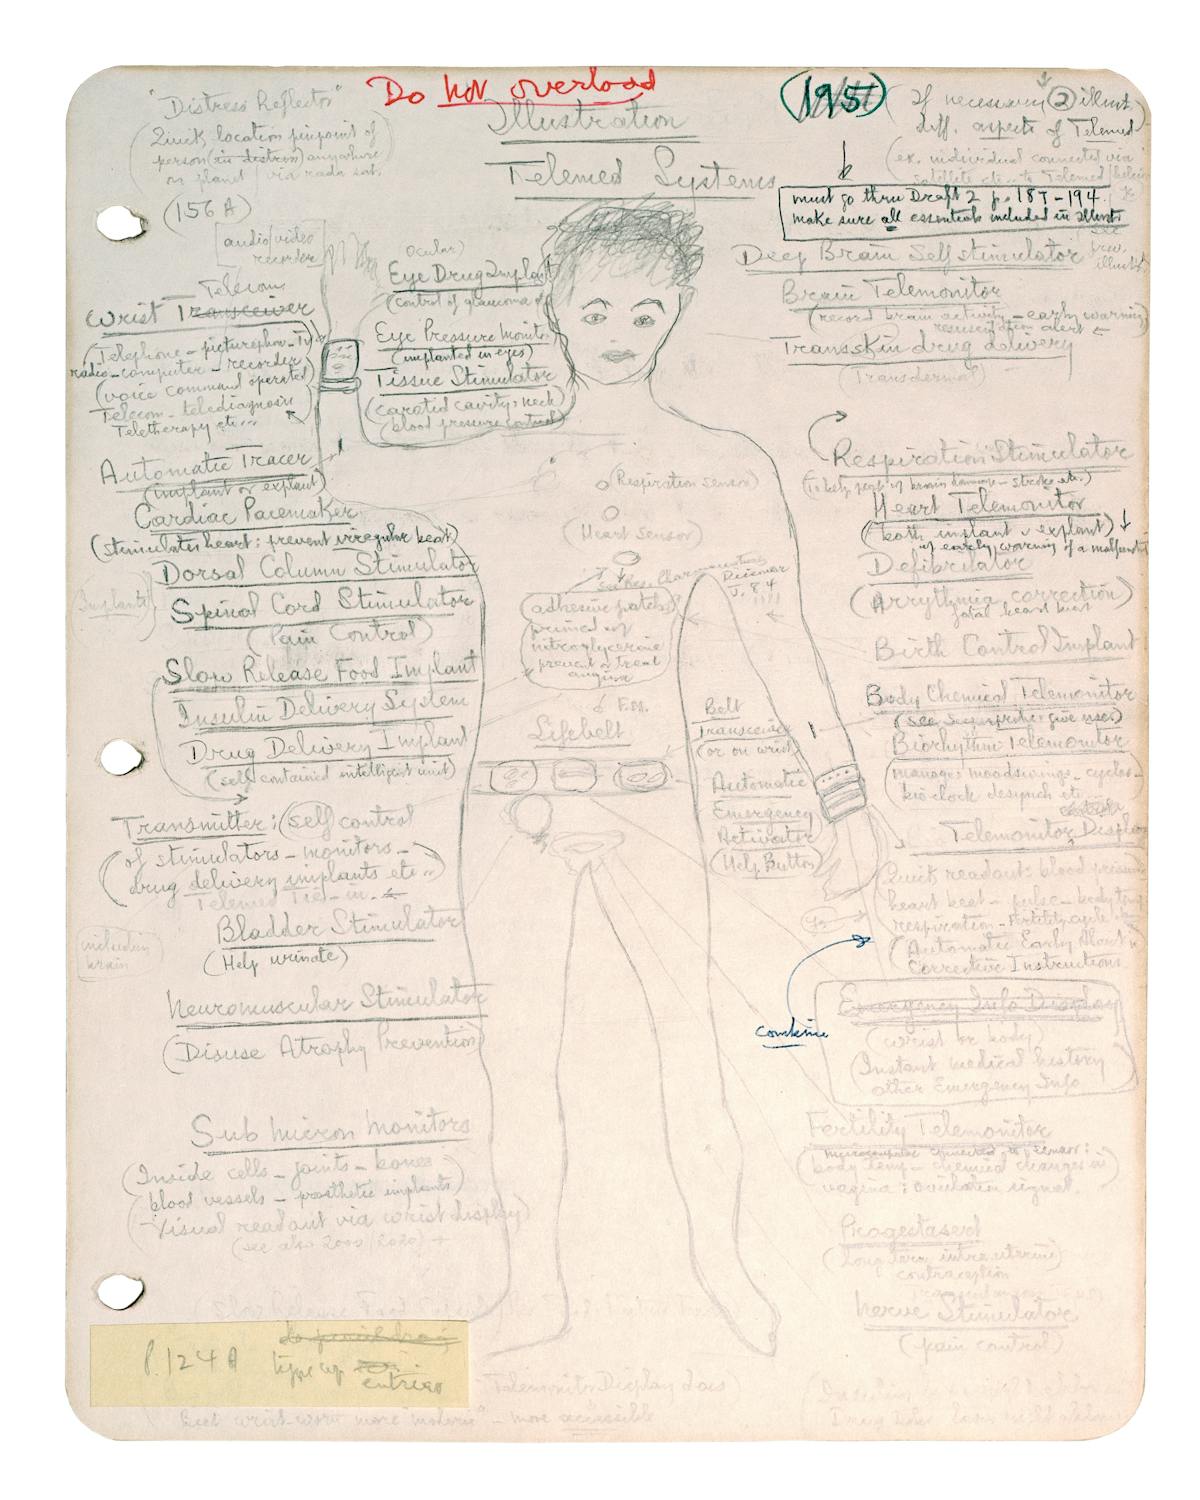 Do not overload
Illustration
Telemed Systems
"Distress Reflector"
(Quick location pinpoint of
person (in distress) anywhere
on planet / via radio sat.
(156 A)
[audio/video
recorder]
(195)
If necessary (2) illust.
diff. aspects of Telemed
(ex. individual connected via
satellite etc.. to Telemed
must go thru Draft 2 p. 187-194
make sure all essentials included in illust.
see
prev.
illust.
Telecom
Wrist Transceiver
(Telephone - picturephone - TV
radio - computer - recorder
(voice command operated)
Telecom - telediagnosis
Teletherapy etc...
ocular)
Eye Drug Implant
(control of glaucoma
Eye Pressure Monitor
(implanted in eyes)
Tissue Stimulator
(carotid cavity: neck
blood pressure control)
Automatic Tracer
(implant or explant)
Cardiac Pacemaker
(stimulates heart: prevent irregular beat)
Dorsal Column Stimulator
Implants
Spinal Cord Stimulator
(Pain Control)
Slow Release Food Implant
Insulin Delivery System
Drug Delivery Implant
(self contained intelligent unit)
Transmitter: (self control
of stimulators - monitors -
drug delivery implants etc..)
Telemed Tie-in
Bladder Stimulator
(Help urinate)
including
brain
Neuromuscular Stimulator
(Disuse Atrophy Prevention)
Sub micron monitors
(Inside cells - joints - bones
blood vessels - prosthetic implants)
- Visual readout via wrist display)
(see also 2000/2020)
(Respiration sensor)
(Heart sensor)
(adhesive patches
primed w/
nitroglycerine
prevent or treat
angina
Lifebelt
Belt
Transceiver
(or on wrist)
Automatic
Emergency
Activator
(Help Button)
Deep Brain Self stimulator
Brain Telemonitor
(record brain activity - early warning)
resuscitation alert
Transskin drug delivery
(Transdermal)
Respiration Stimulator
(To help people w/ brain damage - stroke etc.)
Heart Telemonitor
(both implant & explant)
w/ early warning of a malfunction
Defibrilator
(Arrythmia correction)
fatal heart beat
Birth Control Implant
Body Chemical Telemonitor
Biorhythm Telemonitor
(manages moodswings - cycles -
bio clock desynch etc..
Telemonitor Display
Quick readout: blood pressure
heart beat - pulse - body temp
respiration - fertility cycle
(Automatic Early Alert
Corrective Instructions
Combine
Emergency Info Display
(wrist or body)
(Instant medical history
other Emergency Info
Fertility Telemonitor
microcomputer connected to sensors:
body temp - chemical changes in
vagina: ovulation signal.
Progestasert
(Long term intra uterine)
contraception
Nerve Stimulator
(pain control)
P. 124 A
type up
entries
Telemonitor Display